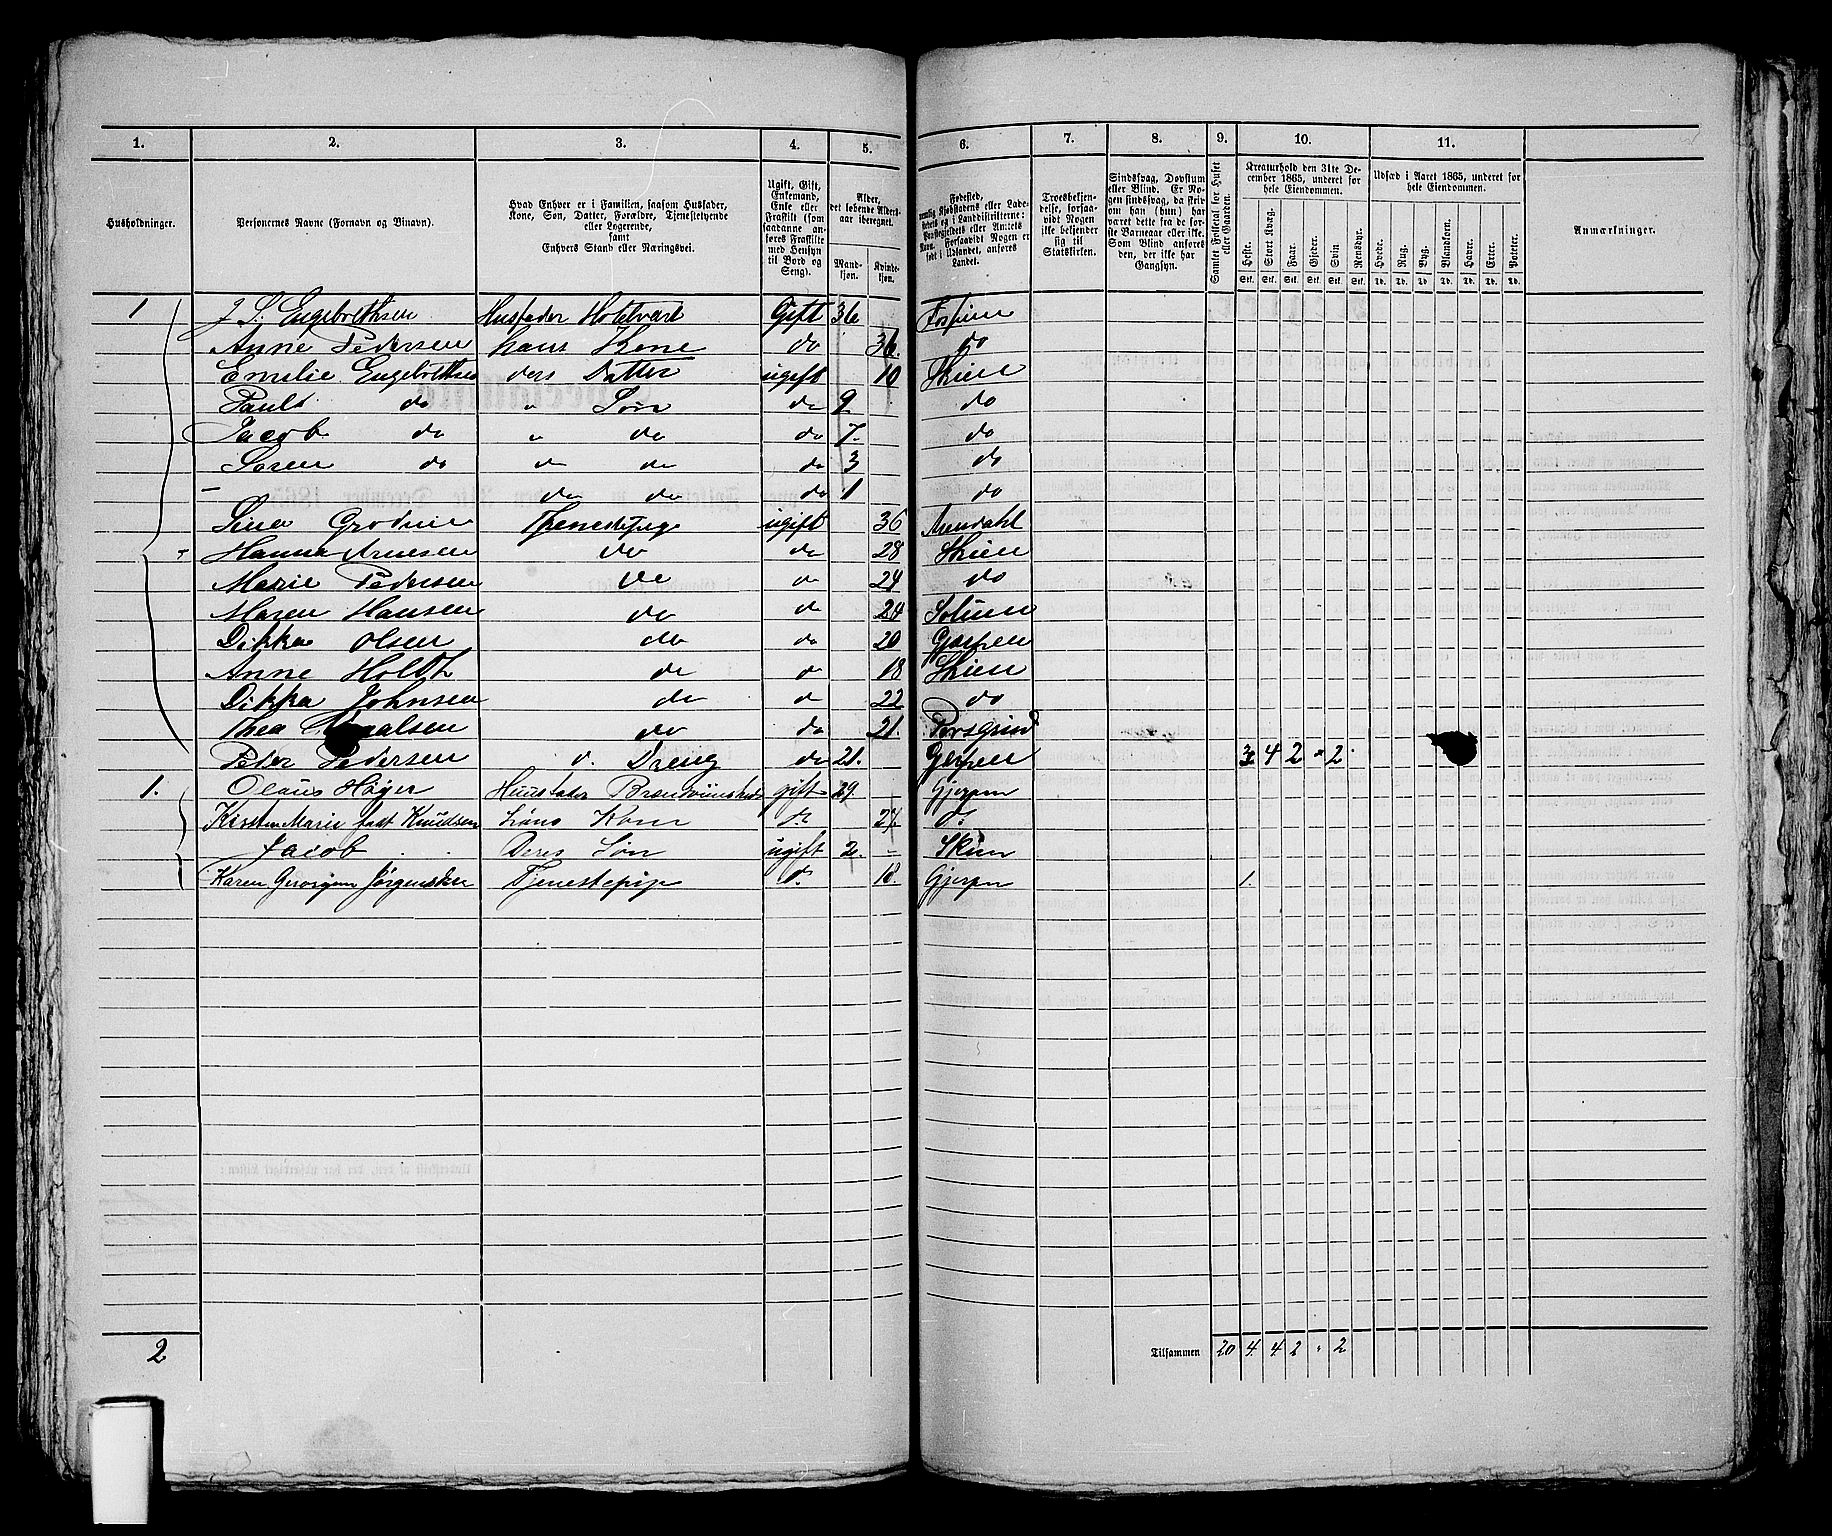 1. 2. 3. 4. 5. 6. 7. 8. 9. 10. 11.
Husholdninger.
Personernes Navne (Fornavn og Binavn).
Hvad Enhver er i Familien, saasom Husfader,
Kone, Søn, Datter, Forældre, Tjenestetyende
eller Logerende,
samt
Enhvers Stand eller Næringsvei.
Ugift, Gift,
Enkemand,
Enke eller
Fraskilt (som
saadanne an-
føres Fraskilte
med Hensyn
til Bord og
Seng).
Alder,
det løbende Alders-
aar iberegnet.
Mand-
kjøn.
Kvinde-
kjøn.
Fødested,
Troesbekjen-
delse, forsaa-
vidt Nogen
ikke bekjender
sig til
Statskirken.
Sindssvag, Døvstum
eller Blind. Er No-
gen sindssvag, da skriv
om han (hun) har
været dette fra de før-
ste Barneaar eller ikke.
Som Blind anføres
den, der ikke har
Gangsyn.
Samlet Folketal for Huset
eller Gaarden.
Kreaturhold den 31te De-
cember 1865, underet for
hele Eiendommen.
Heste. Stort Kvæg. Faar. Gjeder. Svin. Rensdyr.
Stk. Stk. Stk. Stk. Stk. Stk.
Udsæd i Aaret 1865, underet for
hele Eiendommen.
Hvede. Rug. Byg. Blandkorn. Havre. Erter. Poteter.
Td. Td. Td. Td. Td. Td. Td.
Anmærkninger.
1 J. S. Engebrethsen Husfader Gift 36
Anne Pedersen hans Kone do 36. do
Emilie Engebrethsen ders Datter ugift 10 Skien
Paul do " Søn do 9 do
Jacob do " do do 7. do
Søren do do do do 3 do
– do do do 1 do
Grodum Thenestepige ugift 36 Arendahl
Hanna Arnesen do do 28 Skien
Marie Pedersen do do 24 do
Maren Hansen do do 24 Solum
Dikka Olsen do do 20 Gjerpen
Anne Holdt do do 18 Skien
Dikka Johnsen do do 22 do
Thea do do 21. Porsgrund
Peter Pedersen d. Dreng do 21. Gjerpen 3 4 2 " 2
1. Olaus Høyer Huusfader gift 29 Gjerpen
Kirsten Marie født Knudsen Kone do do
Jacob Deres Søn ugift 2. – Skien
Karen Tjenestepige do 18. Gjerpen 1.
2
Tilsammen 20 4 4 2 " 2